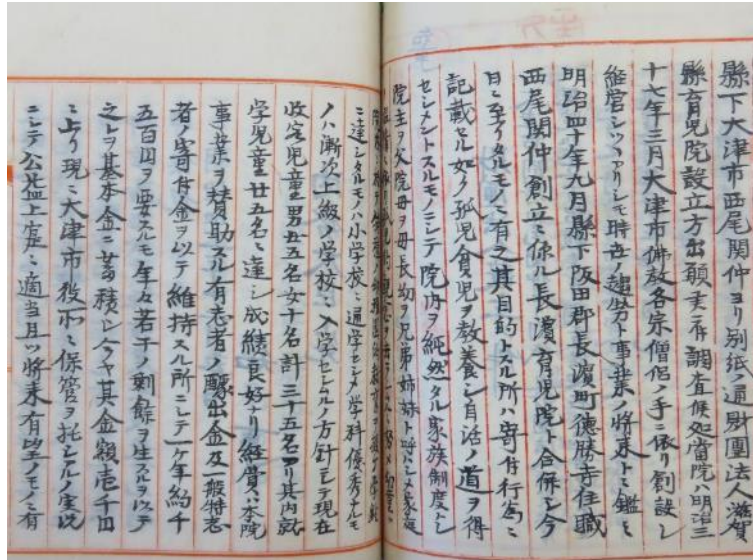 縣下大津市西尾関仲ヨリ別紙ノ通財團法人滋賀
縣育児院設立方出願ニ付調査候処當院ハ明治三
十七年三月大津市佛教各宗僧侶ノ手ニ依リ創設シ
経営シツヽアリシモ時世ノ趨勢ト事業ノ将来トニ鑑ミ
明治四十年九月縣下阪田郡長濱町徳勝寺住職
西尾関仲創立ニ係ル長濱育児院ト合併シ今
日ニ至リタルモノニ有之其目的トスル所ハ寄付行為ニ
記載セル如ク孤児貧児ヲ教養シ自活ノ道ヲ得
セシメントスルモノニシテ院内ヲ純然タル家族制度トシ
院主ヲ父院母ヲ母長幼ヲ兄弟姉妹ト呼ハシメ家庭
ニ達シタルモノハ小学校ニ通学セシメ学科優秀ナルモ
ノハ漸次上級ノ学校ニ入学セシムルノ方針ニシテ現在
収容児童男廿五名女十名計三十五名アリ其内就
学児童廿五名ニ達シ成績良好ナリ経費ハ本院
事業ヲ賛助スル有志者ノ醵出金及一般特志
者ノ寄付金ヲ以テ維持スル所ニシテ一ケ年約千
五百円ヲ要スルモ年々若干ノ剰餘ヲ生スルヲ以テ
之レヲ基本金ニ蓄積シ今ヤ其金額壱千円
ニ上リ現ニ大津市役所ニ保管ヲ托シ居ルノ実況
ニシテ公益上寔ニ適当且ツ将来有望ノモノニ有